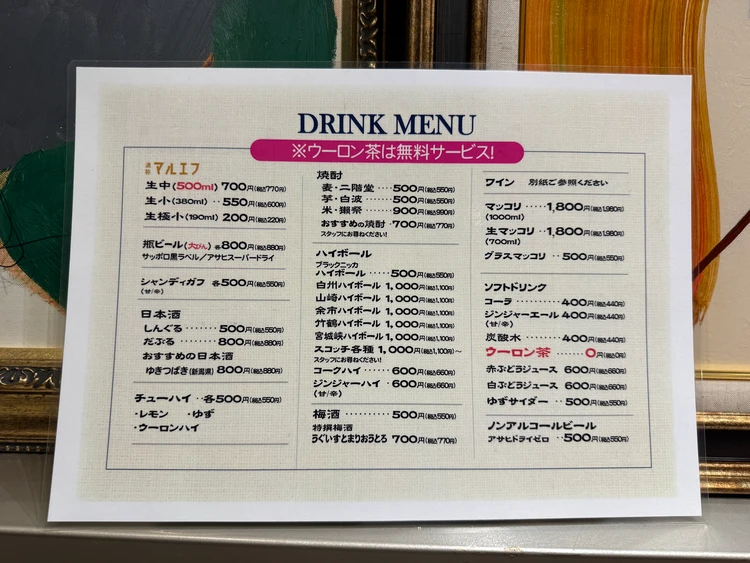 DRINK MENU
※ウーロン茶は無料サービス!
マルエフ
生中(500ml) 700円(税込770円)
生小(380ml) ‥ 550円(税込600円)
生極小(190ml) 200円(税込220円)
瓶ビール(大びん) 各800円(税込880円)
サッポロ黒ラベル/アサヒスーパードライ
シャンディガフ 各500円(税込550円)
(甘/辛)
日本酒
しんぐる ‥‥‥‥ 500円(税込550円)
だぶる ‥‥‥‥ 800円(税込880円)
おすすめの日本酒
ゆきつばき(新潟県) 800円(税込880円)
チューハイ ‥各500円(税込550円)
・レモン ・ゆず
・ウーロンハイ
焼酎
麦・二階堂 ‥‥ 500円(税込550円)
芋・白波 ‥‥‥ 500円(税込550円)
米・獺祭 ‥‥‥ 900円(税込990円)
おすすめの焼酎 ・700円(税込770円)
スタッフにお尋ねください!
ハイボール
ブラックニッカ
ハイボール ‥‥‥ 500円(税込550円)
白州ハイボール 1,000円(税込1,100円)
山崎ハイボール 1,000円(税込1,100円)
余市ハイボール 1,000円(税込1,100円)
竹鶴ハイボール 1,000円(税込1,100円)
宮城峡ハイボール 1,000円(税込1,100円)
スコッチ各種 1,000円(税込1,100円)〜
スタッフにお尋ねください!
コークハイ ‥‥ 600円(税込660円)
ジンジャーハイ ・600円(税込660円)
(甘/辛)
梅酒 ‥‥‥‥ 500円(税込550円)
特撰梅酒
うぐいすとまりおうとろ 700円(税込770円)
ワイン 別紙ご参照ください
マッコリ ‥‥‥ 1,800円(税込1,980円)
(1000ml)
生マッコリ ‥‥ 1,800円(税込1,980円)
(700ml)
グラスマッコリ ‥ 500円(税込550円)
ソフトドリンク
コーラ ‥‥‥‥‥ 400円(税込440円)
ジンジャーエール 400円(税込440円)
(甘/辛)
炭酸水 ‥‥‥‥ 400円(税込440円)
ウーロン茶 ‥‥‥ 0円(税込0円)
赤ぶどうジュース 600円(税込660円)
白ぶどうジュース 600円(税込660円)
ゆずサイダー ‥‥ 500円(税込550円)
ノンアルコールビール
アサヒドライゼロ ‥ 500円(税込550円)